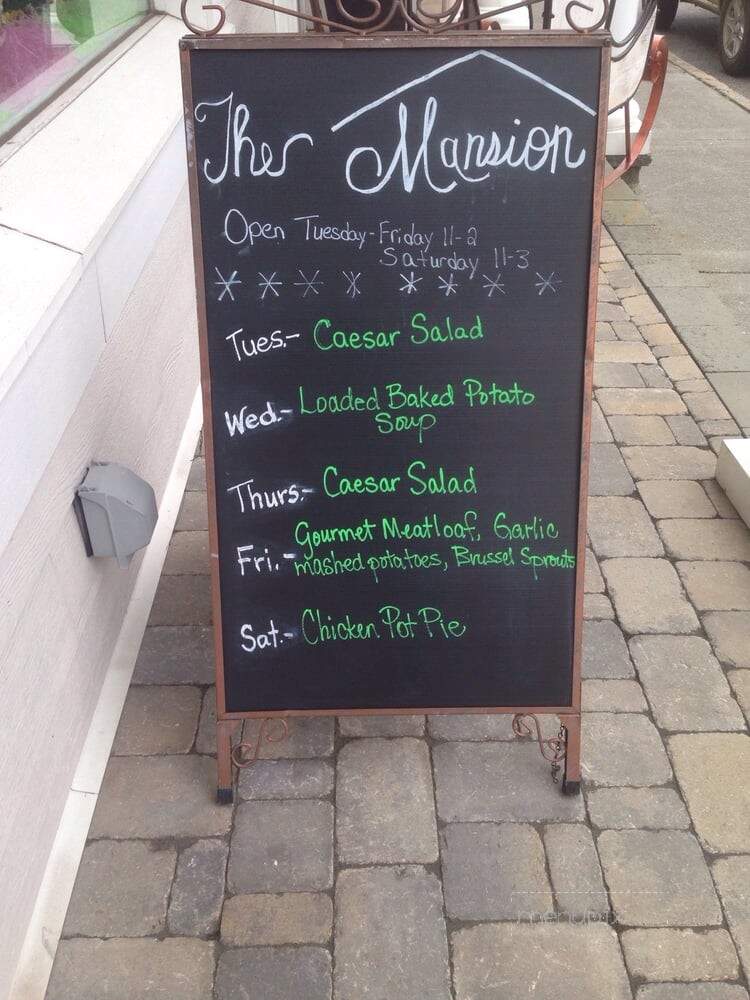 The Mansion
Open Tuesday-Friday 11-2
Saturday 11-3
Tues.- Caesar Salad
Wed.- Loaded Baked Potato
Soup
Thurs.- Caesar Salad
Fri.- Gourmet Meatloaf, Garlic
mashed potatoes, Brussel Sprouts
Sat.- Chicken Pot Pie
menupix